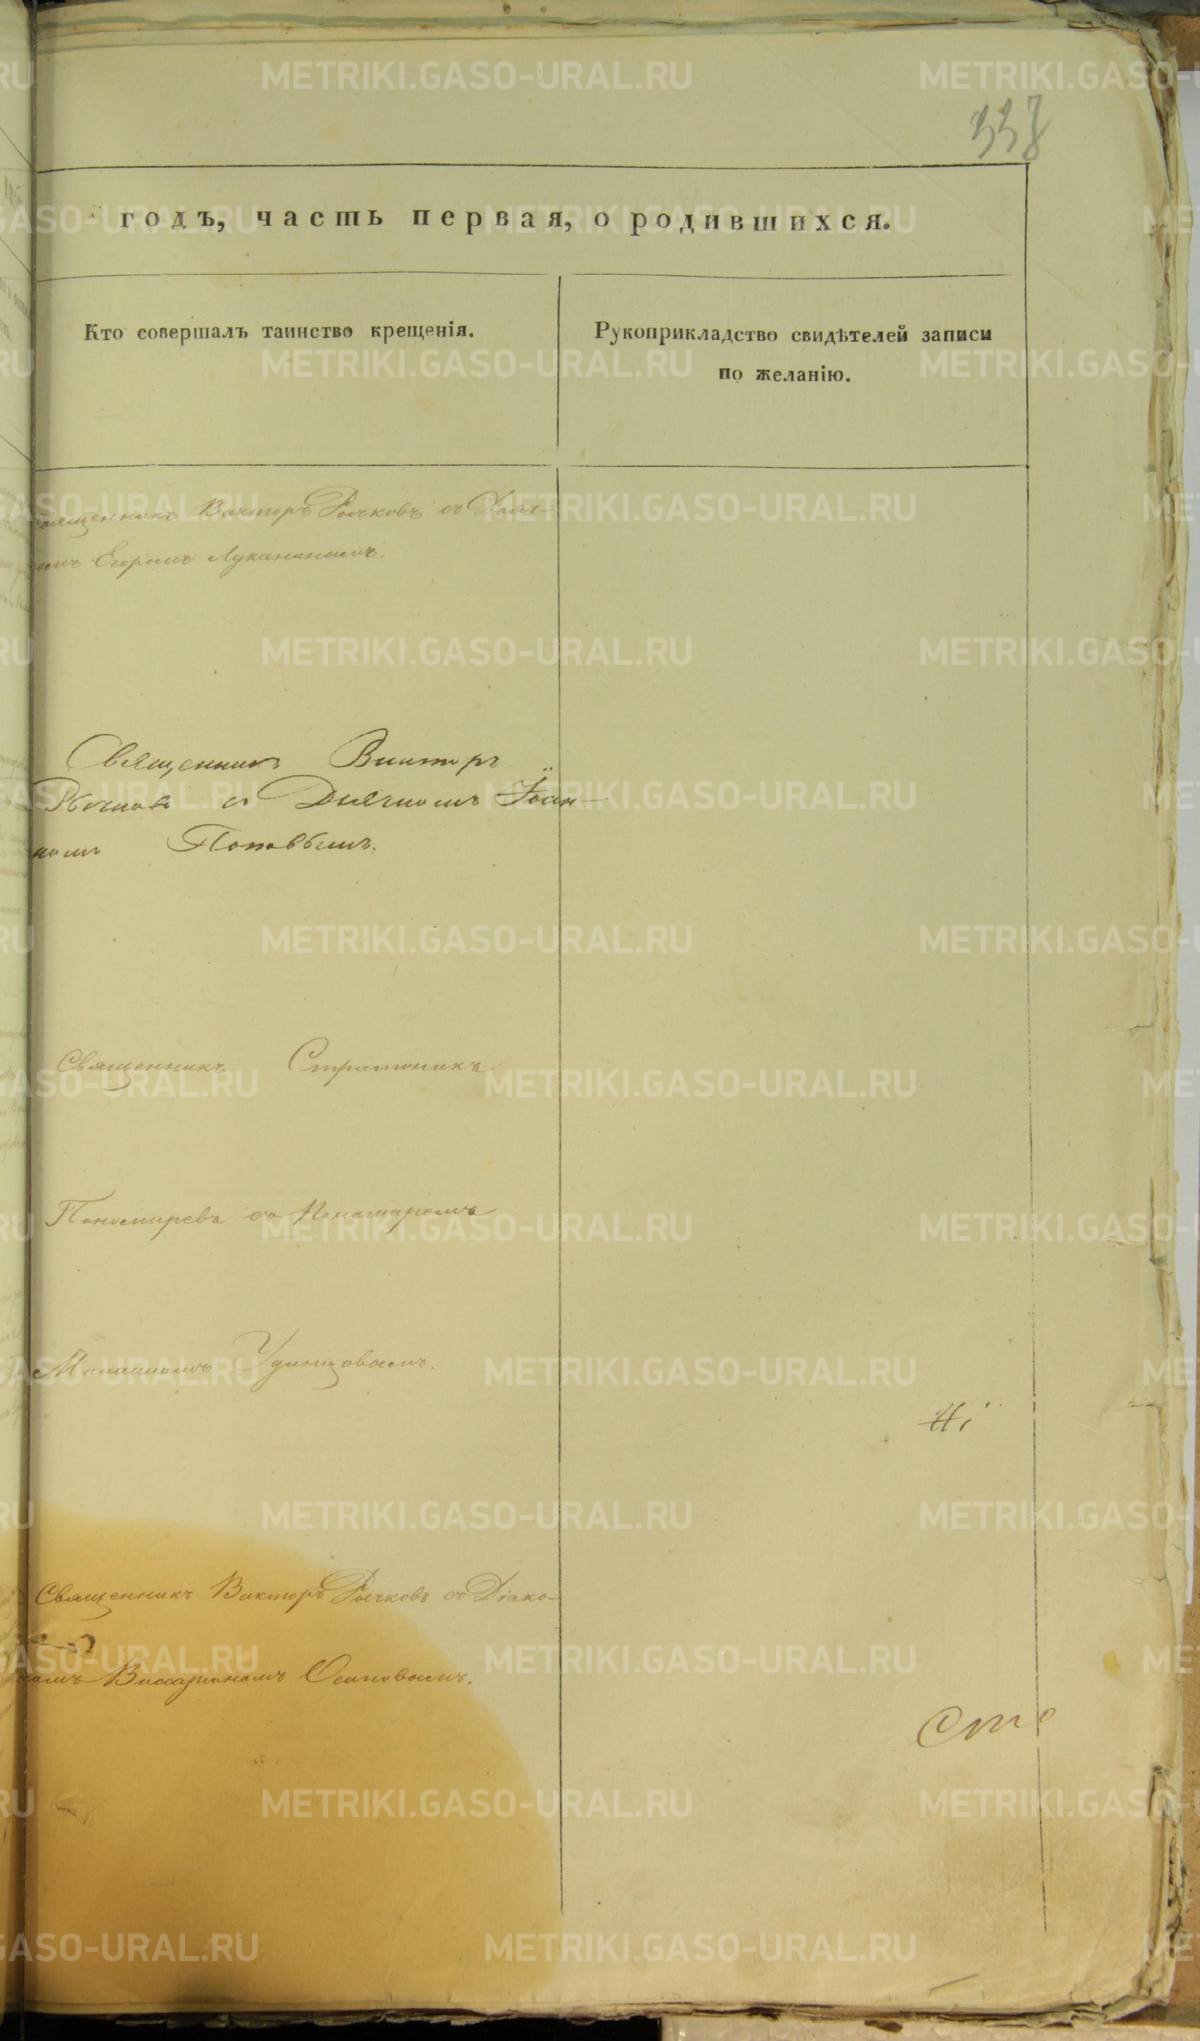 338
годъ, часть первая, о родившихся.
Кто совершалъ таинство крещенія.
Рукоприкладство свидѣтелей записи
по желанію.
Священникъ Викторъ Рычковъ съ Дьяч-
комъ Егоромъ Луканинымъ.
Священникъ Викторъ
Рычковъ съ Дьячкомъ Іоан-
номъ Поповымъ.
Священникъ Стратоникъ
Пономаревъ съ Пономаремъ
Удинцовымъ.
Священникъ Викторъ Рычковъ съ Діако-
номъ Виссаріономъ Осиповымъ.
METRIKI.GASO-URAL.RU